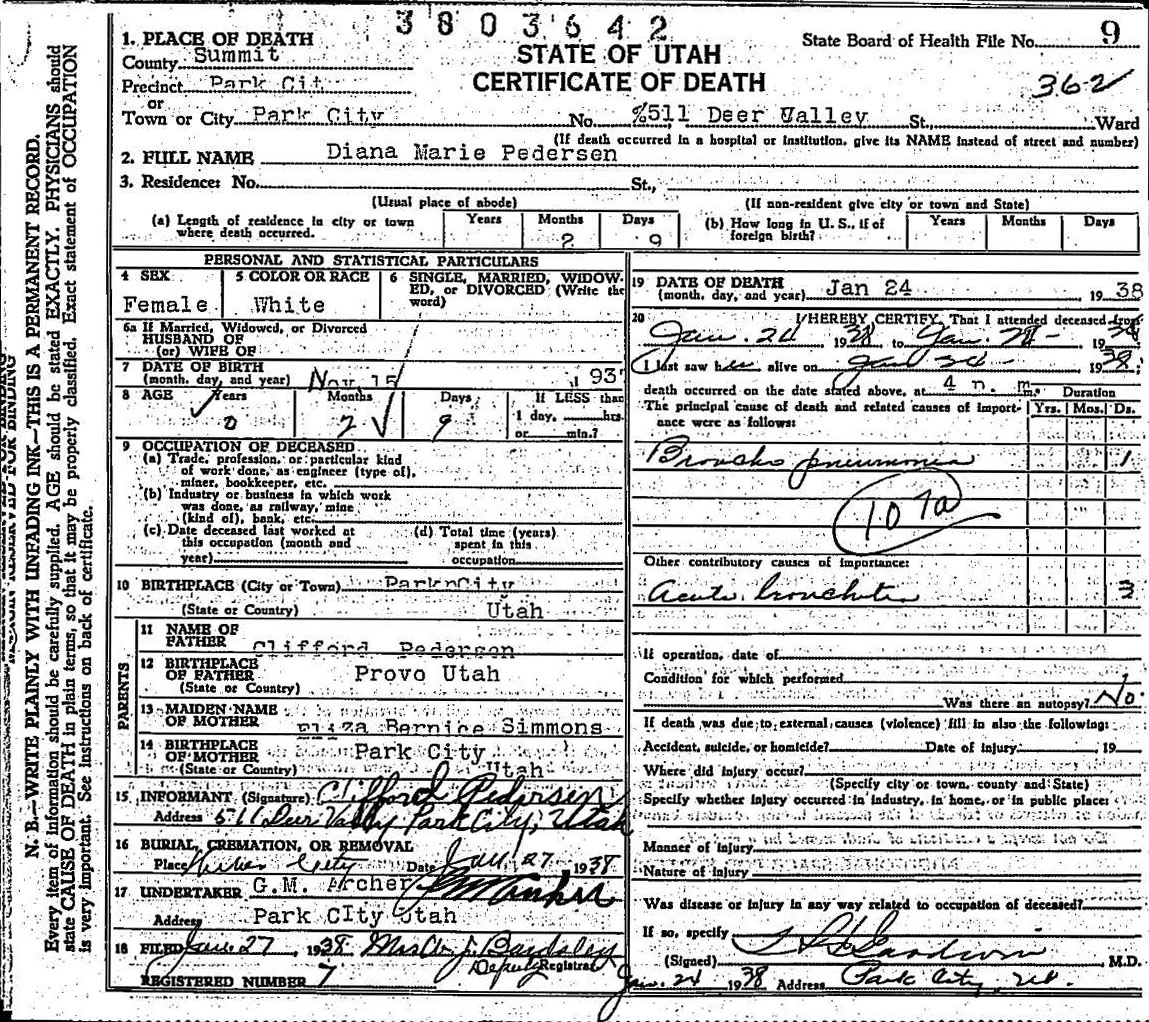 3803642
1. PLACE OF DEATH
STATE OF UTAH
CERTIFICATE OF DEATH
State Board of Health File No. 9
362
County Summit
Precinct Park Cit
or
Town or City Park City No. %511 Deer Valley St., Ward
(If death occurred in a hospital or institution, give its NAME instead of street and number)
2. FULL NAME Diana Marie Pedersen
3. Residence: No. St.,
(Usual place of abode) (If non-resident give city or town and State)
(a) Length of residence in city or town where death occurred. Years Months 2 Days 9
(b) How long in U. S., if of foreign birth? Years Months Days
PERSONAL AND STATISTICAL PARTICULARS
4 SEX Female
5 COLOR OR RACE White
6 SINGLE, MARRIED, WIDOWED, or DIVORCED (Write the word)
6a If Married, Widowed, or Divorced
HUSBAND OF
(or) WIFE OF
7 DATE OF BIRTH
(month, day, and year) Nov 15 1937
8 AGE Years 0 Months 2 Days 9
If LESS than
1 day, hrs.
or min.?
9 OCCUPATION OF DECEASED
(a) Trade, profession, or particular kind
of work done, as engineer (type of),
miner, bookkeeper, etc.
(b) Industry or business in which work
was done, as railway, mine
(kind of), bank, etc.
(c) Date deceased last worked at
this occupation (month and
year)
(d) Total time (years)
spent in this
occupation
10 BIRTHPLACE (City or Town) Park City
(State or Country) Utah
PARENTS
11 NAME OF
FATHER Clifford Pedersen
12 BIRTHPLACE
OF FATHER Provo Utah
(State or Country)
13 MAIDEN NAME
OF MOTHER Eliza Bernice Simmons
14 BIRTHPLACE
OF MOTHER Park City
(State or Country) Utah
15 INFORMANT (Signature) Clifford Pedersen
Address 511 Deer Valley Park City, Utah
16 BURIAL, CREMATION, OR REMOVAL
Place City Date Jan 27 1938
17 UNDERTAKER G.M. Archer
Address Park CIty Utah
18 FILED Jan. 27 1938 Mrs J. Bardsley
Deputy Registrar
REGISTERED NUMBER 7
19 DATE OF DEATH
(month, day, and year) Jan 24 1938
20 I HEREBY CERTIFY, That I attended deceased from
Jan. 24 1938 to Jan. 19
I last saw h alive on Jan 24 1938;
death occurred on the date stated above, at 4 m.
Duration
The principal cause of death and related causes of importance were as follows:
Yrs. Mos. Ds.
Broncho pneumonia 1
107a
Other contributory causes of importance:
Acute bronchitis 3
If operation, date of
Condition for which performed
Was there an autopsy? No
If death was due to external causes (violence) fill in also the following:
Accident, suicide, or homicide? Date of injury 19
Where did injury occur?
(Specify city or town, county and State)
Specify whether injury occurred in industry, in home, or in public place:
Manner of injury
Nature of injury
Was disease or injury in any way related to occupation of deceased?
If so, specify
(Signed) M.D.
Jan. 24 1938 Address Park City, Ut.
N. B.—WRITE PLAINLY WITH UNFADING INK—THIS IS A PERMANENT RECORD.
Every item of information should be carefully supplied. AGE should be stated EXACTLY. PHYSICIANS should
state CAUSE OF DEATH in plain terms, so that it may be properly classified. Exact statement of OCCUPATION
is very important. See instructions on back of certificate.